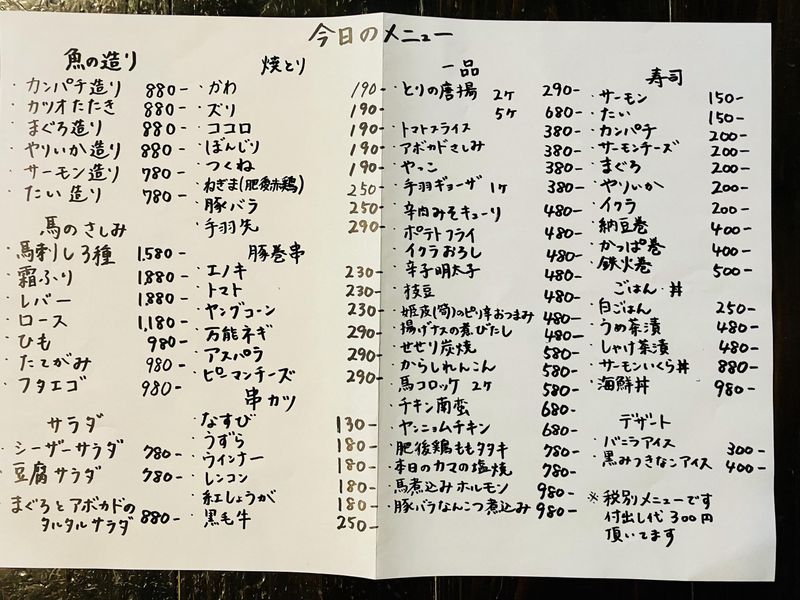 今日のメニュー
魚の造り
・カンパチ造り 880-
・カツオたたき 880-
・まぐろ造り 880-
・やりいか造り 880-
・サーモン造り 780-
・たい造り 780-
馬のさしみ
・馬刺し3種 1,580-
・霜ふり 1,880-
・レバー 1,880-
・ロース 1,180-
・ひも 980-
・たてがみ 980-
・フタエゴ 980-
サラダ
・シーザーサラダ 780-
・豆腐サラダ 780-
・まぐろとアボカドの
タルタルサラダ 880-
焼とり
・かわ 190-
・ズリ 190-
・ココロ 190-
・ぼんじり 190-
・つくね 190-
・ねぎま(肥後赤鶏) 250-
・豚バラ 250-
・手羽先 290-
豚巻串
・エノキ 230-
・トマト 230-
・ヤングコーン 230-
・万能ネギ 290-
・アスパラ 290-
・ピーマンチーズ 290-
串カツ
・なすび 130-
・うずら 180-
・ウインナー 180-
・レンコン 180-
・紅しょうが 180-
・黒毛牛 250-
一品
・とりの唐揚 2ケ 290-
5ケ 680-
・トマトスライス 380-
・アボカドさしみ 380-
・やっこ 380-
・手羽ギョーザ 1ケ 380-
・辛肉みそキューリ 480-
・ポテトフライ 480-
・イクラおろし 480-
・辛子明太子 480-
・枝豆 480-
・姫皮(筍)のピリ辛おつまみ 480-
・揚げナスの煮びたし 480-
・せせり炭焼 580-
・からしれんこん 580-
・馬コロッケ 2ケ 580-
・チキン南蛮 680-
・ヤンニョムチキン 680-
・肥後鶏ももタタキ 780-
・本日のカマの塩焼 780-
・馬煮込みホルモン 980-
・豚バラなんこつ煮込み 980-
寿司
・サーモン 150-
・たい 150-
・カンパチ 200-
・サーモンチーズ 200-
・まぐろ 200-
・やりいか 200-
・イクラ 200-
・納豆巻 400-
・かっぱ巻 400-
・鉄火巻 500-
ごはん・丼
・白ごはん 250-
・うめ茶漬 480-
・しゃけ茶漬 480-
・サーモンいくら丼 880-
・海鮮丼 980-
デザート
・バニラアイス 300-
・黒みつきなこアイス 400-
※税別メニューです
付出し代300円
頂いてます